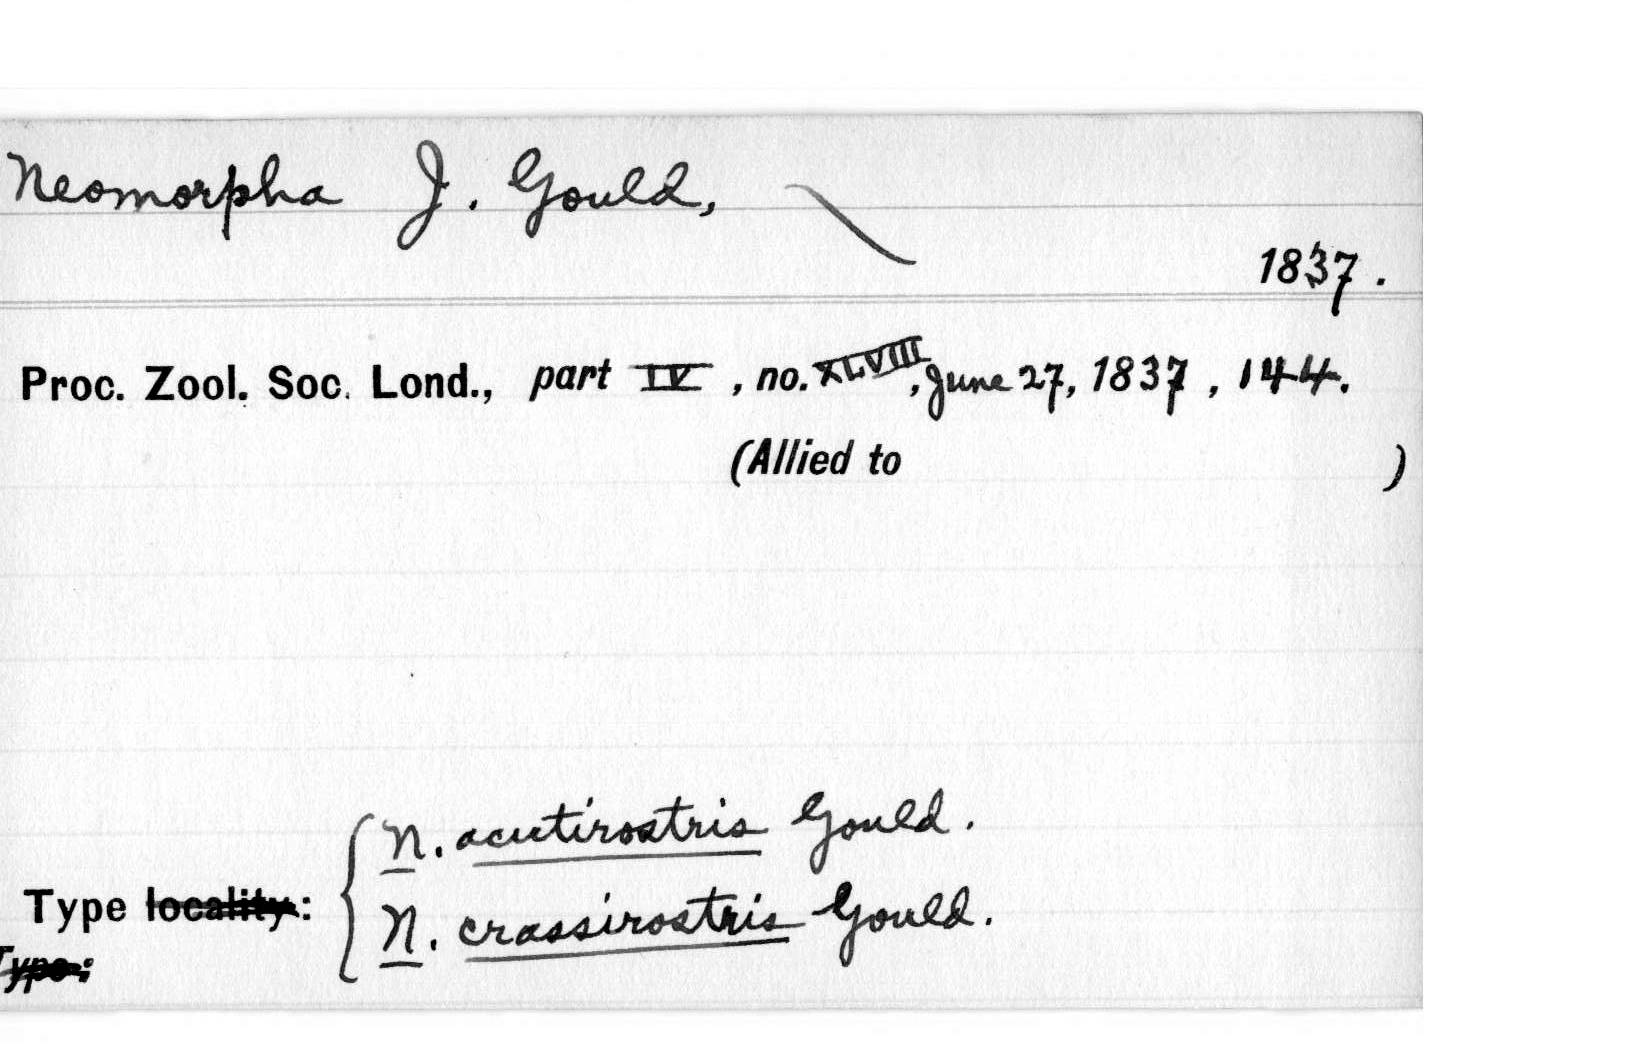 Neomorpha J. Gould,
1837.
Proc. Zool. Soc. Lond., part IV, no. XLVIII, June 27, 1837, 144.
(Allied to )
N. acutirostris Gould.
Type locality:
N. crassirostris Gould.
Type: